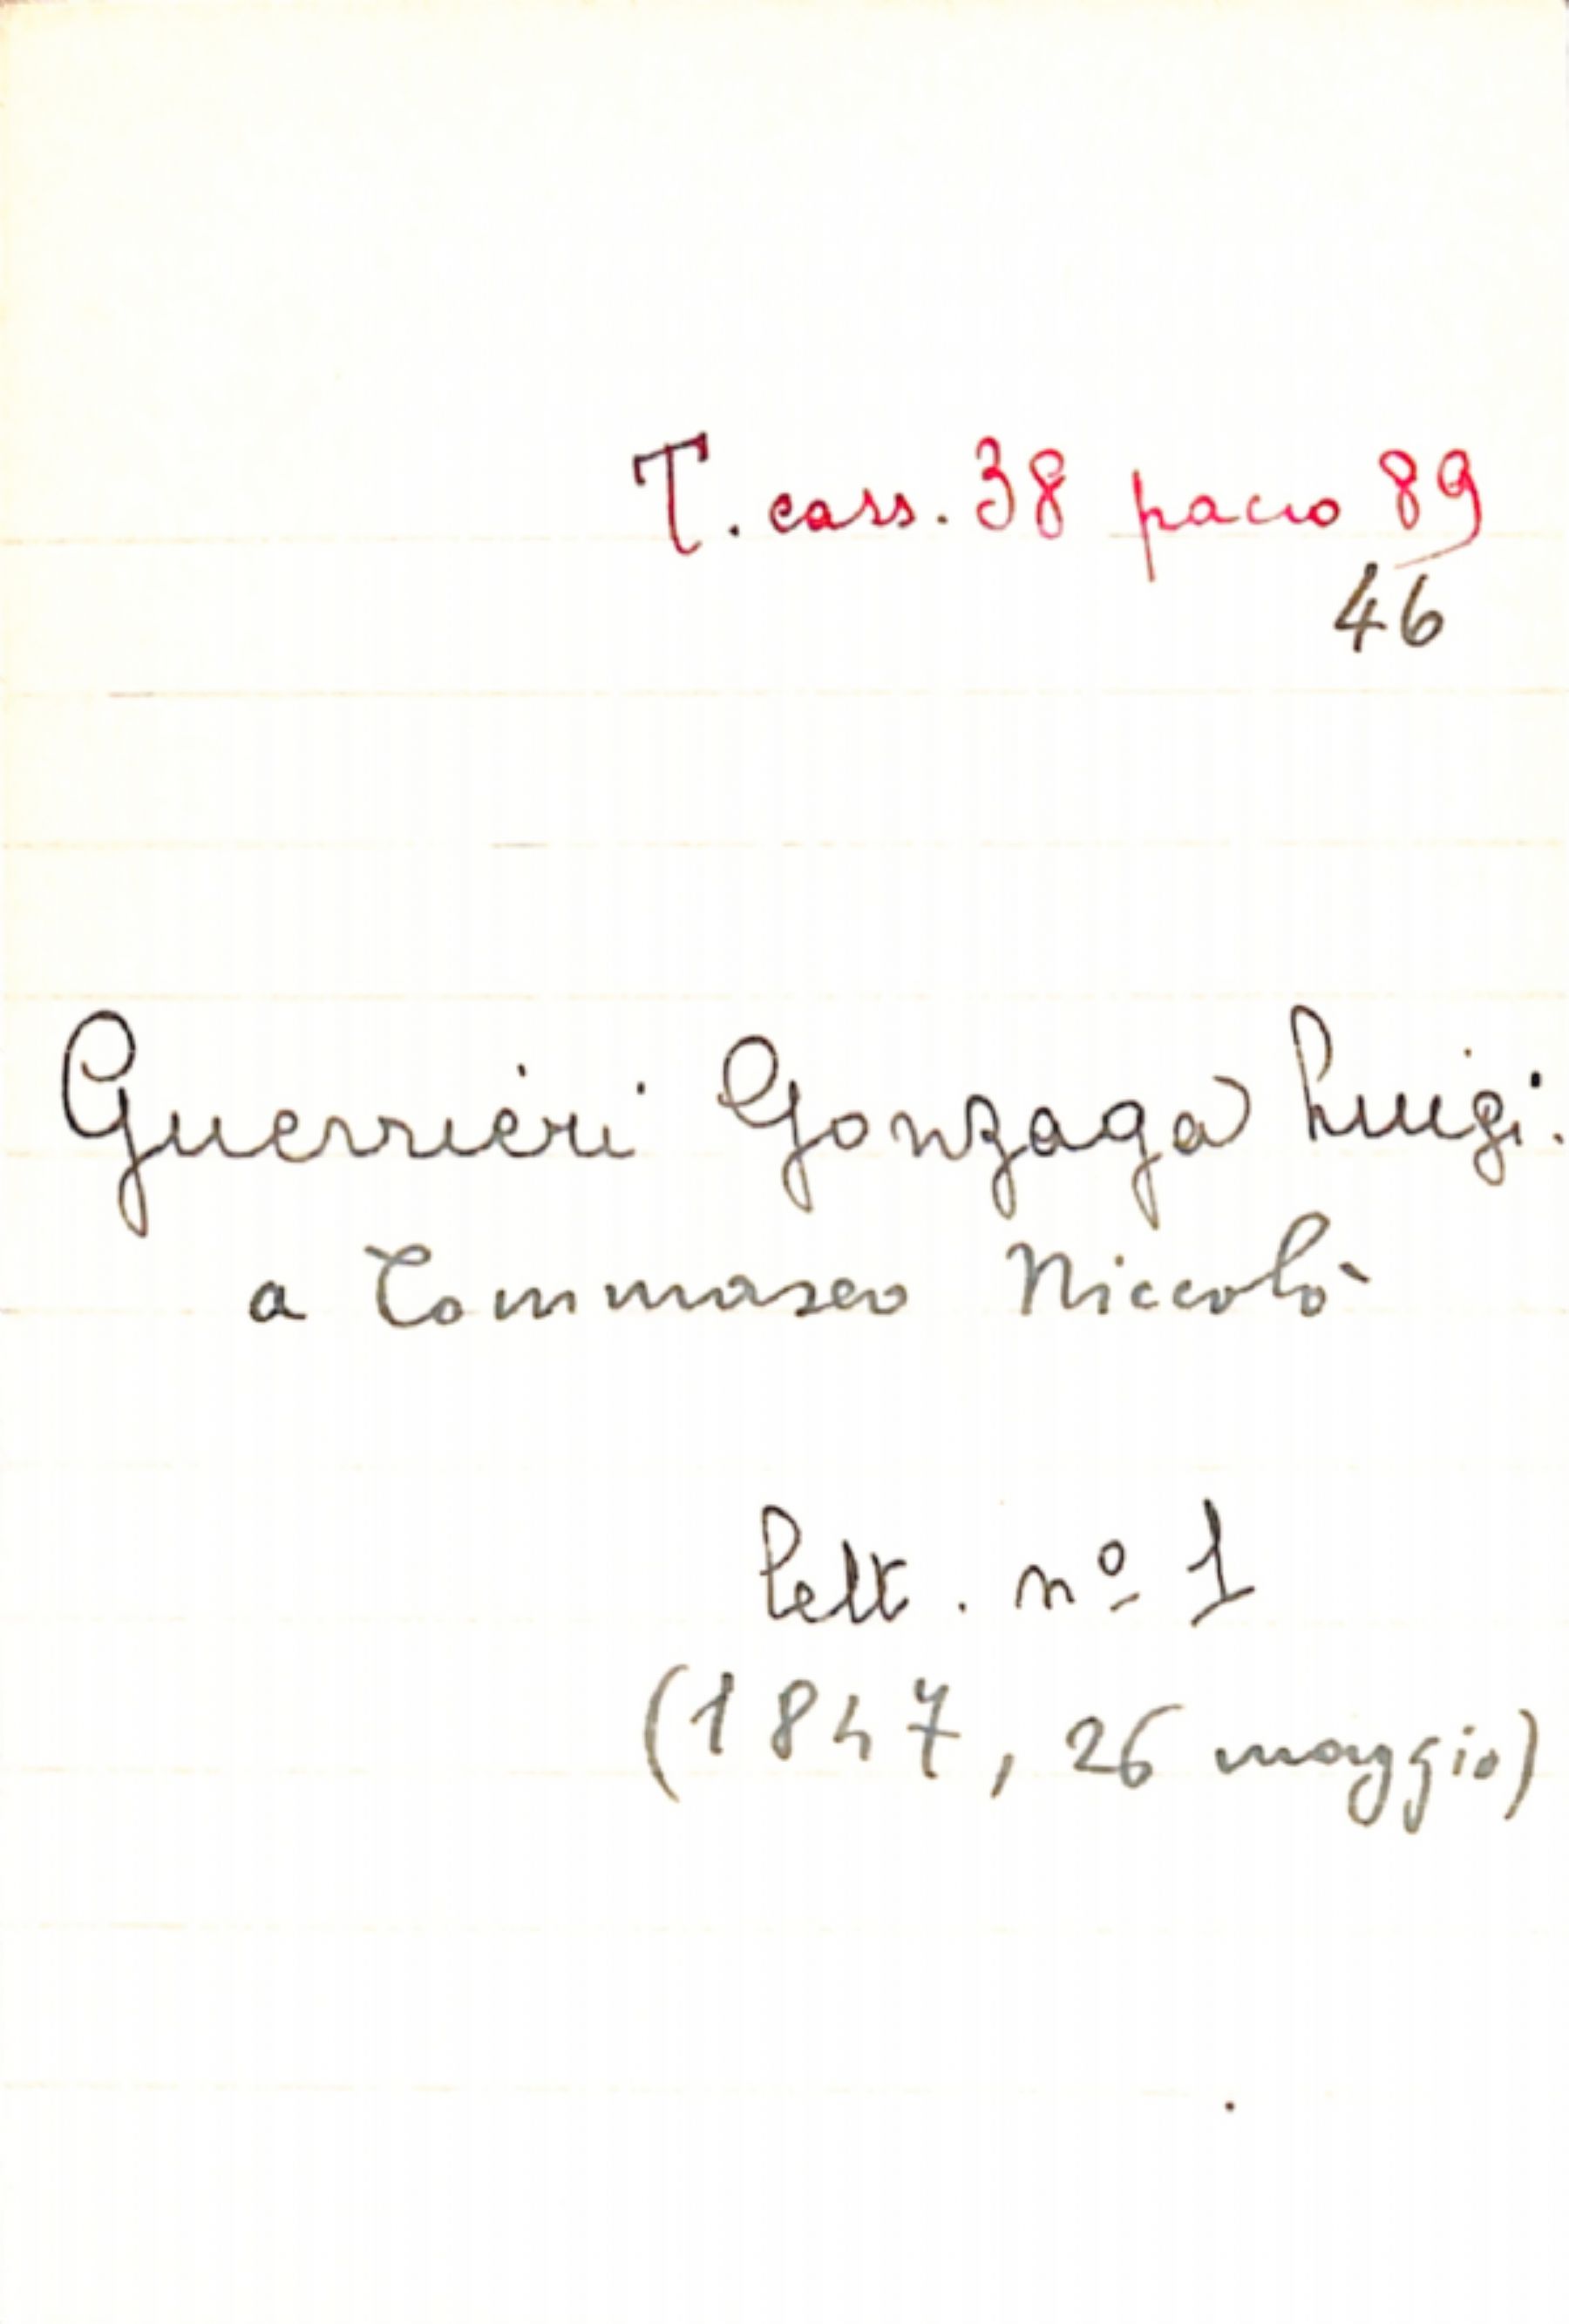 T. cass. 38 pacco 89
46
Guerrieri Gonzaga Luigi.
a Tommaseo Niccolò
Lett. nº 1
(1847, 26 maggio)